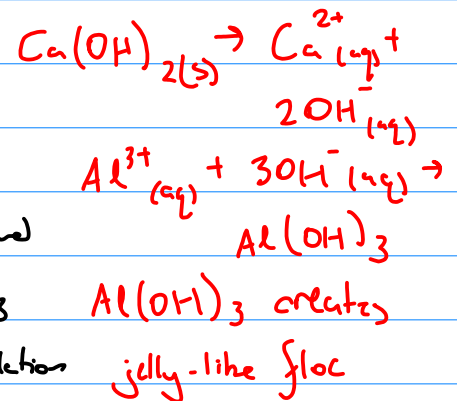 Ca(OH)₂(s) → Ca²⁺(aq) +
2OH⁻(aq)
Al³⁺(aq) + 3OH⁻(aq) →
Al(OH)₃
Al(OH)₃ creates
jelly-like floc